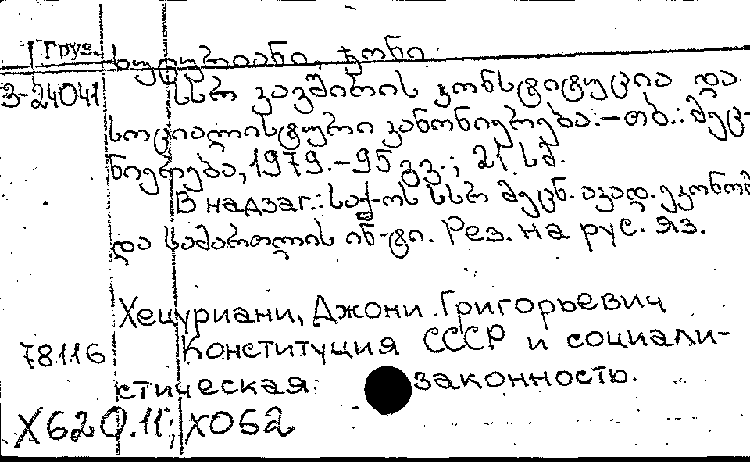 Груз. ხეცურიანი, ჯონი.
3-24041 სსრ კავშირის კონსტიტუცია და
სოციალისტური კანონიერება.-თბ.: მეც-
ნიერება, 1979.-95 გვ.; 21 სმ.
В надзаг.: საქ-ოს სსრ მეცნ. აკად. ეკონომ
და სამართლის ინ-ტი. Рез. на рус. яз.
Хецуриани, Джони Григорьевич
78116 Конституция СССР и социали-
стическая законность.
Х620.11; Х062